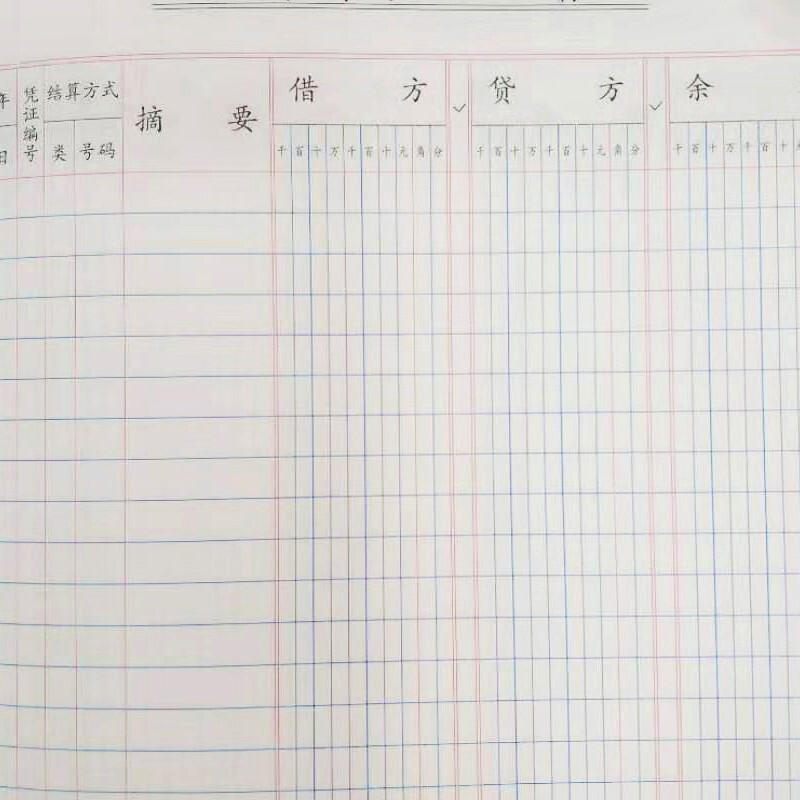 年 凭证编号 结算方式 摘 要 借 方 ✓ 贷 方 ✓ 余
日 类 号码 千 百 十 万 千 百 十 元 角 分 千 百 十 万 千 百 十 元 角 分 千 百 十 万 千 百 十